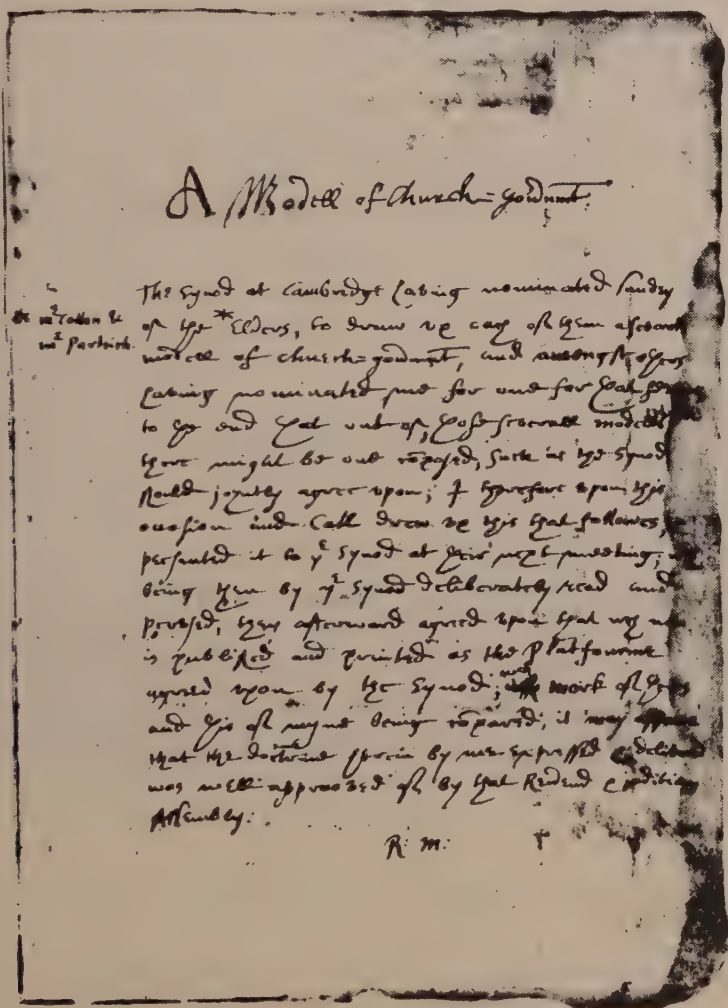 A Modell of Church=gouernmt.
The Synod at Cambridge having nominated sundry
* mr Cotton &
mr Partrich.
of the *Elders, to draw vp each of them a severall
modell of church=gouernmt, and amongst others
having nominated me for one for that
to the end that out of those severall modells
there might be one cōposed, such as the Synod
should joyntly agree vpon; I therefore vpon this
occasion and Call drew vp this that followes,
presented it to ye Synod at their next meeting;
being then by ye Synod deliberately read and
perused, they afterward agreed vpon that wch
is published and printed as the Platforme
agreed vpon by the Synod; wch work of theirs
and this of myne being cōpared, it may
that the doctrine herein by me expressed &
was well approoved of by that Reverend &
Assembly.
R: M: